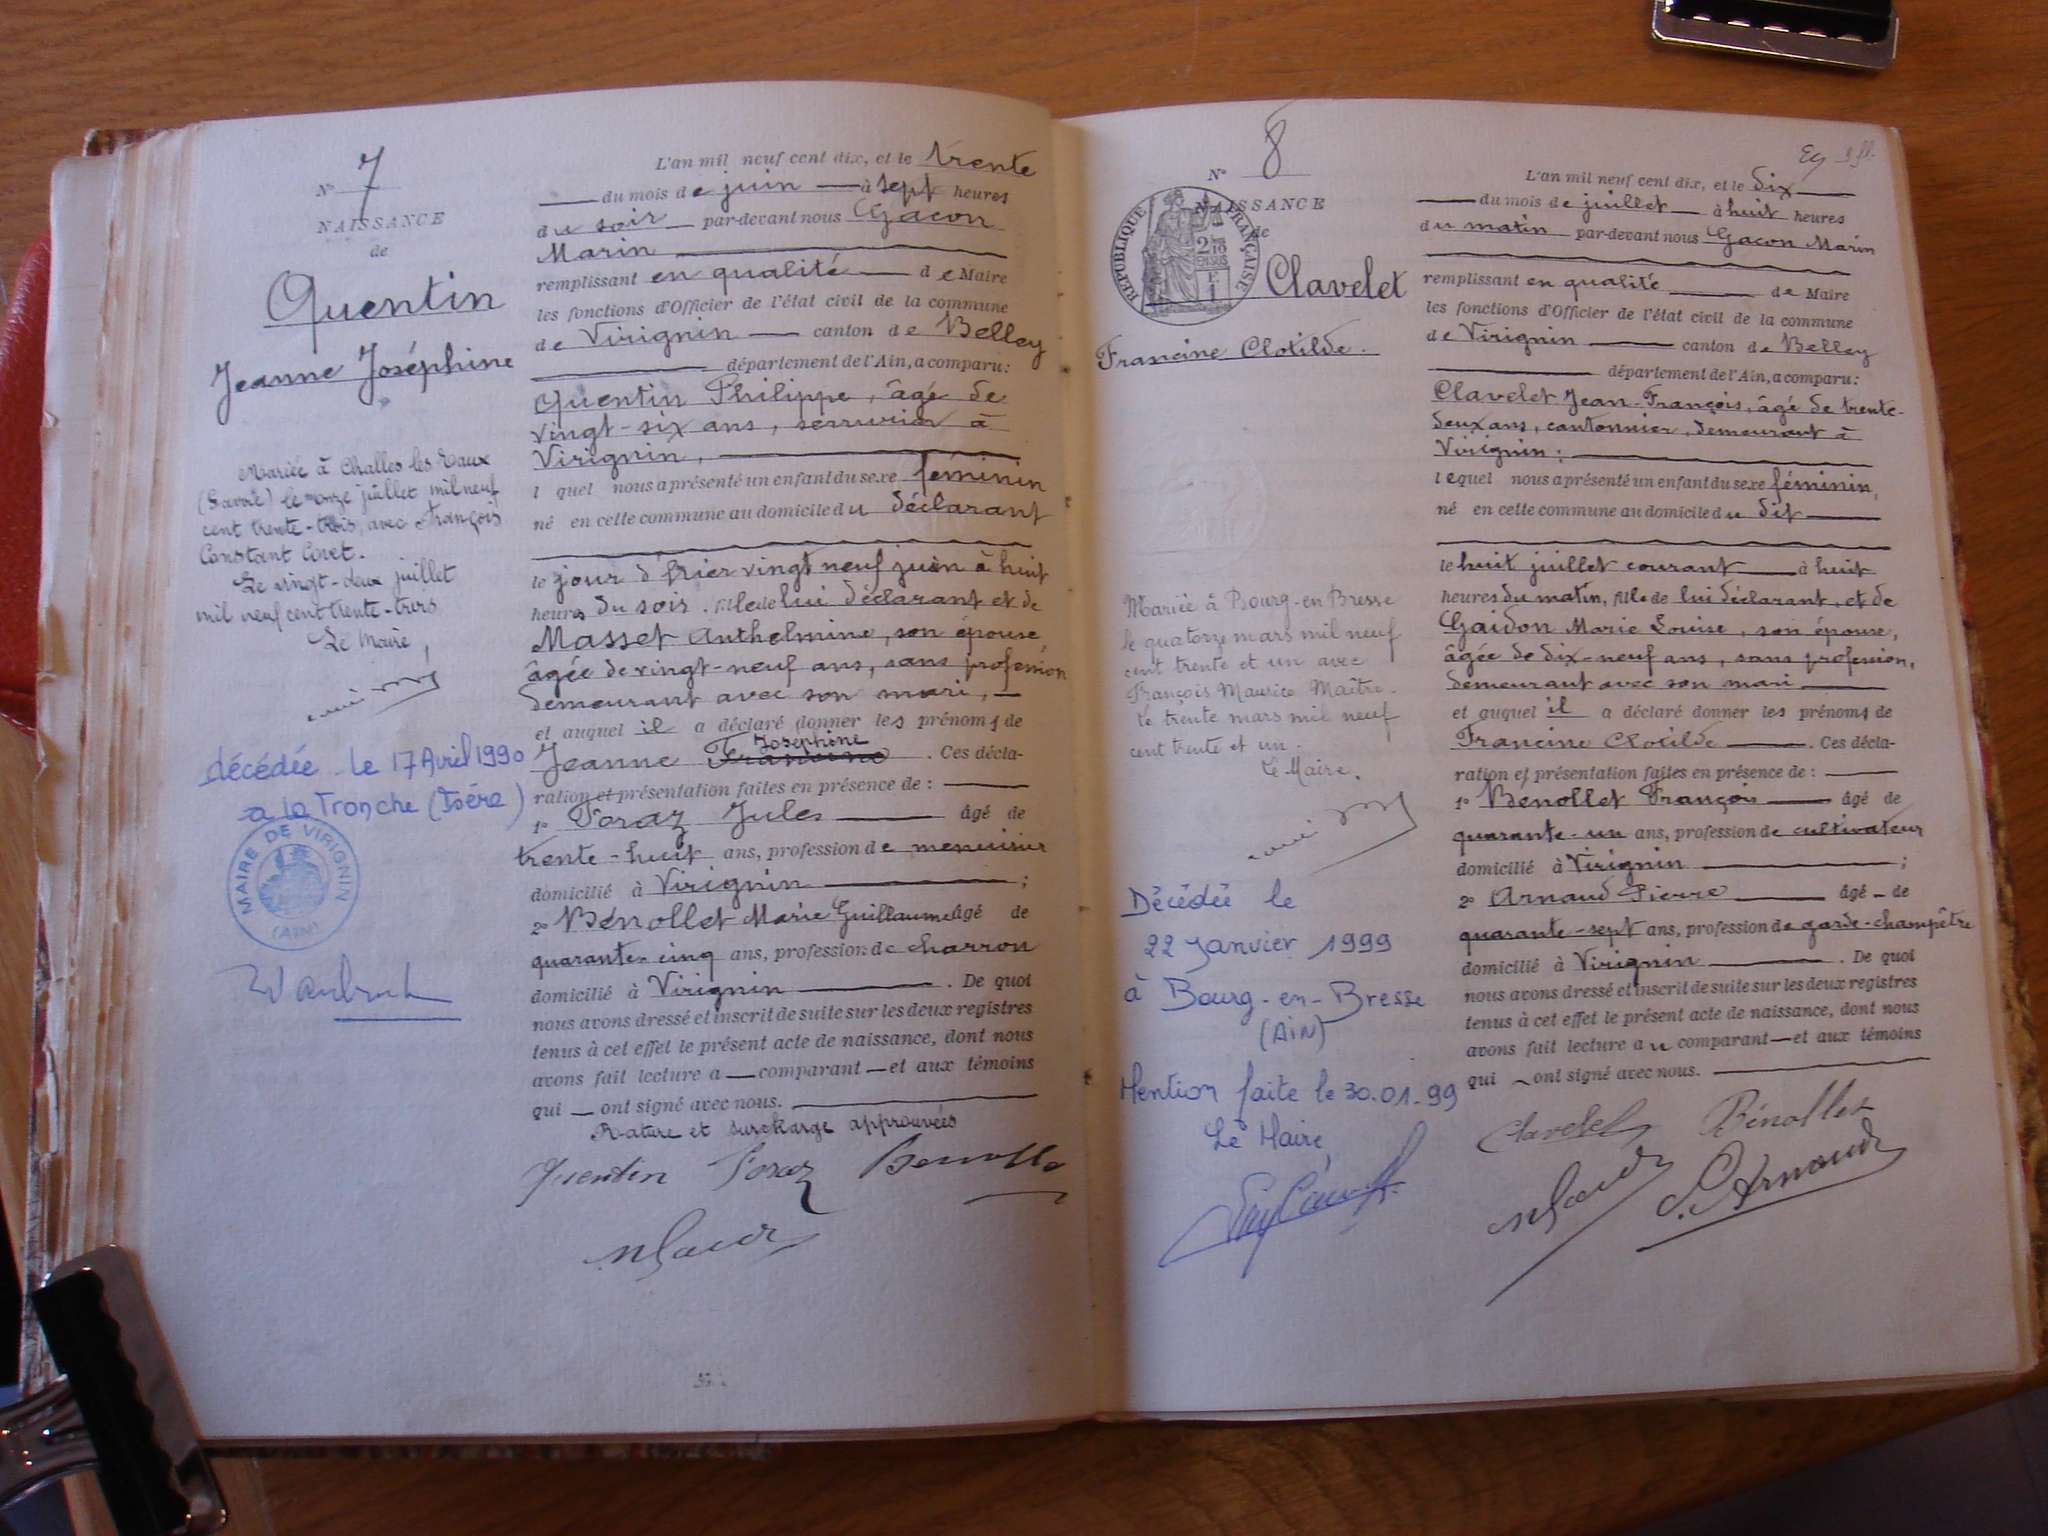 N° 7
NAISSANCE
de
Quentin
Jeanne Joséphine
Mariée à Challes les Eaux
(Savoie) le onze juillet mil neuf
cent trente-trois, avec François
Constant Coret.
Le vingt-deux juillet
mil neuf cent trente-trois
Le Maire,
décédée le 17 Avril 1990
a la Tronche (Isére)
MAIRIE DE VIRIGNIN
(AIN)
L'an mil neuf cent dix, et le trente
du mois de juin à sept heures
du soir par-devant nous Gacon
Marin
remplissant en qualité de Maire
les fonctions d'Officier de l'état civil de la commune
de Virignin canton de Belley
département de l'Ain, a comparu:
Quentin Philippe, âgé de
vingt-six ans, serrurier à
Virignin,
l quel nous a présenté un enfant du sexe féminin
né en cette commune au domicile du déclarant
le jour d'hier vingt neuf juin à huit
heures du soir, fille de lui déclarant et de
Masset Anthelmine, son épouse,
âgée de vingt-neuf ans, sans profession
demeurant avec son mari,
et auquel il a déclaré donner les prénoms de
Joséphine
Jeanne Francine. Ces décla-
ration et présentation faites en présence de :
1° Poraz Jules âgé de
trente-huit ans, profession de menuisier
domicilié à Virignin ;
2° Bénollet Marie Guillaume âgé de
quarante-cinq ans, profession de charron
domicilié à Virignin. De quoi
nous avons dressé et inscrit de suite sur les deux registres
tenus à cet effet le présent acte de naissance, dont nous
avons fait lecture a comparant et aux témoins
qui ont signé avec nous.
Rature et surcharge approuvées
Quentin Poraz Benollet
N° 8
NAISSANCE
de
RÉPUBLIQUE FRANÇAISE
Clavelet
Francine Clotilde.
Mariée à Bourg-en Bresse
le quatorze mars mil neuf
cent trente et un avec
François Maurice Maître.
le trente mars mil neuf
cent trente et un.
Le Maire.
Décédée le
22 Janvier 1999
à Bourg-en-Bresse
(AiN)
Mention faite le 30.01.99
Le Maire,
L'an mil neuf cent dix, et le dix
du mois de juillet à huit heures
du matin par-devant nous Gacon Marin
remplissant en qualité de Maire
les fonctions d'Officier de l'état civil de la commune
de Virignin canton de Belley
département de l'Ain, a comparu:
Clavelet Jean-François, âgé de trente-
deux ans, cantonnier, demeurant à
Virignin;
lequel nous a présenté un enfant du sexe féminin,
né en cette commune au domicile du dit
le huit juillet courant à huit
heures du matin, fille de lui déclarant, et de
Gaidon Marie Louise, son épouse,
âgée de dix-neuf ans, sans profession,
demeurant avec son mari
et auquel il a déclaré donner les prénoms de
Francine Clotilde. Ces décla-
ration et présentation faites en présence de :
1° Bénollet François âgé de
quarante-un ans, profession de cultivateur
domicilié à Virignin ;
2° Arnaud Pierre âgé de
quarante-sept ans, profession de garde-champêtre
domicilié à Virignin. De quoi
nous avons dressé et inscrit de suite sur les deux registres
tenus à cet effet le présent acte de naissance, dont nous
avons fait lecture au comparant et aux témoins
qui ont signé avec nous.
Clavelet Bénollet
P. Arnaud